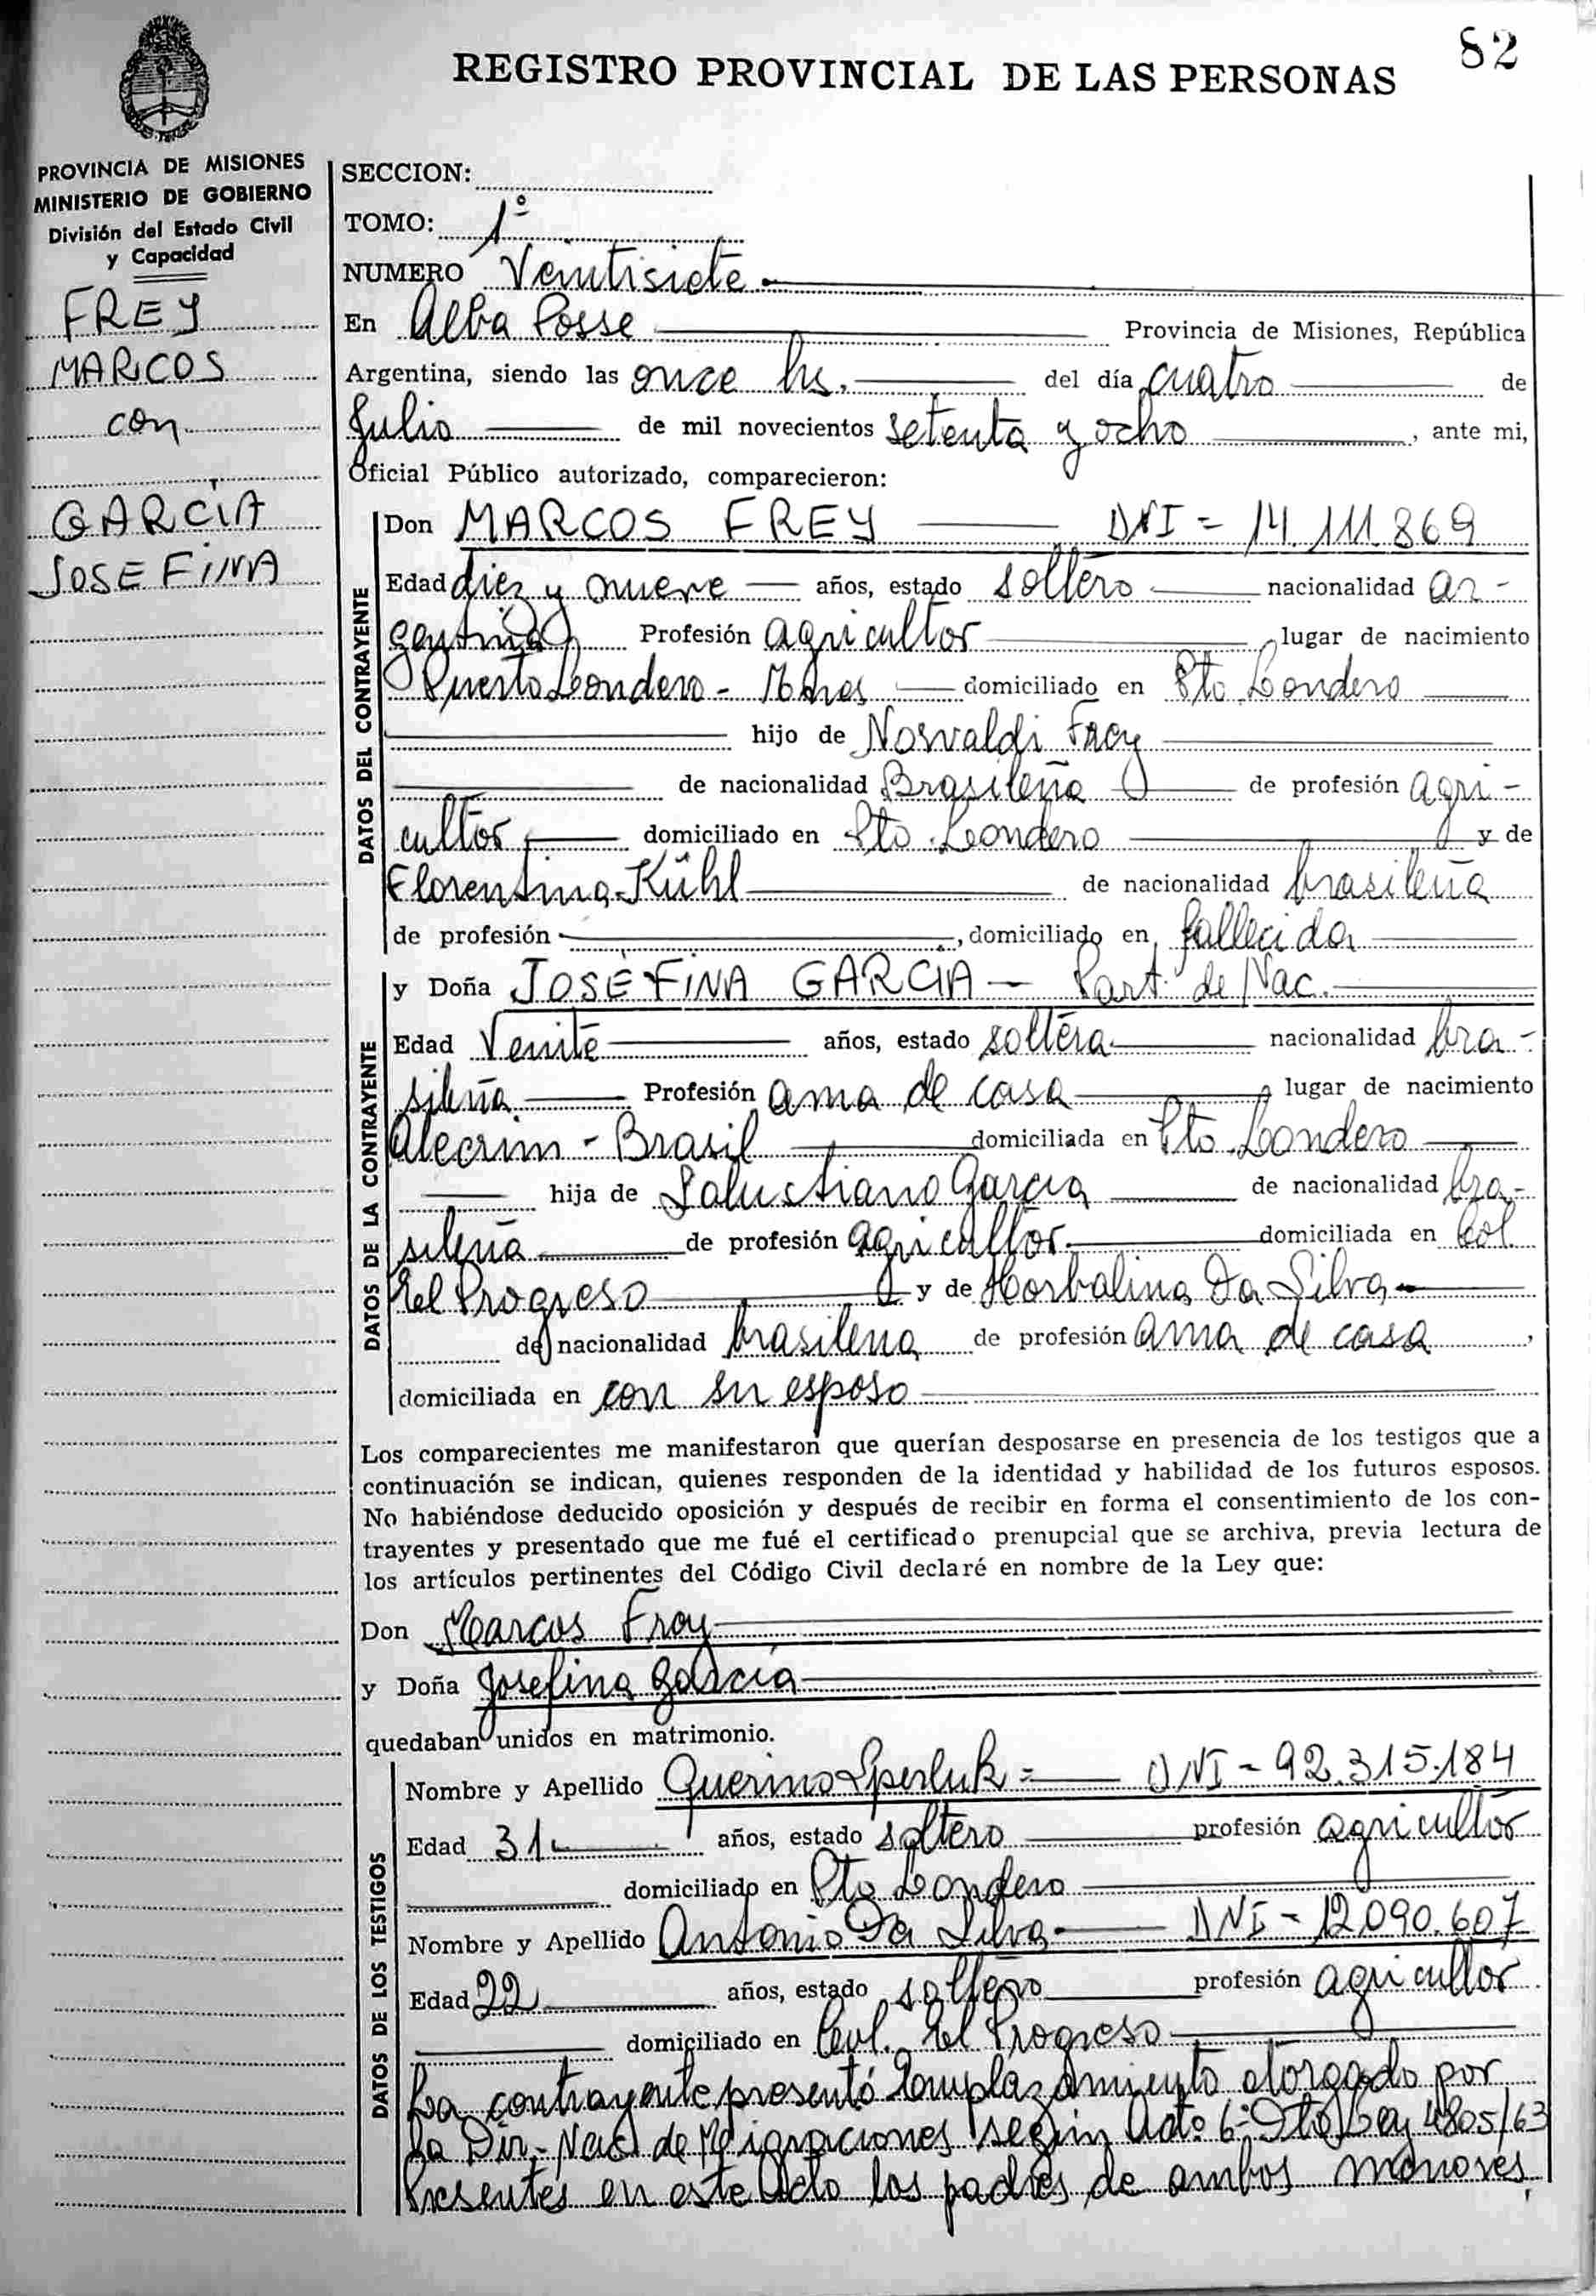 82
REGISTRO PROVINCIAL DE LAS PERSONAS
PROVINCIA DE MISIONES
MINISTERIO DE GOBIERNO
División del Estado Civil
y Capacidad
FREY
MARCOS
con
GARCÍA
JOSEFINA
SECCION:
TOMO: 1º
NUMERO Veintisiete
En Alba Posse Provincia de Misiones, República
Argentina, siendo las once hs. del día cuatro de
Julio de mil novecientos setenta y ocho, ante mi,
Oficial Público autorizado, comparecieron:
DATOS DEL CONTRAYENTE
Don MARCOS FREY DNI = 14.111.869
Edad diez y nueve años, estado soltero nacionalidad ar-
gentina Profesión agricultor lugar de nacimiento
Puerto Londero - Mnes domiciliado en Pto Londero
hijo de Norvaldi Frey
de nacionalidad Brasileña de profesión agri-
cultor domiciliado en Pto. Londero y de
Florentina Kühl de nacionalidad brasileña
de profesión , domiciliado en fallecida
DATOS DE LA CONTRAYENTE
y Doña JOSEFINA GARCIA - Part. de Nac.
Edad Veinte años, estado soltera nacionalidad bra-
sileña Profesión ama de casa lugar de nacimiento
Alecrim - Brasil domiciliada en Pto. Londero
hija de Salustiano Garcia de nacionalidad bra-
sileña de profesión agricultor domiciliada en Col.
El Progreso y de Horbalina Da Silva
de nacionalidad brasilena de profesión ama de casa,
domiciliada en con su esposo
Los comparecientes me manifestaron que querían desposarse en presencia de los testigos que a
continuación se indican, quienes responden de la identidad y habilidad de los futuros esposos.
No habiéndose deducido oposición y después de recibir en forma el consentimiento de los con-
trayentes y presentado que me fué el certificado prenupcial que se archiva, previa lectura de
los artículos pertinentes del Código Civil declaré en nombre de la Ley que:
Don Marcos Frey
y Doña Josefina García
quedaban unidos en matrimonio.
DATOS DE LOS TESTIGOS
Nombre y Apellido Querino Sperluk = DNI - 92.315.184
Edad 31 años, estado soltero profesión agricultor
domiciliado en Pto Londero
Nombre y Apellido Antonio Da Silva DNI - 12.090.607
Edad 22 años, estado soltero profesión agricultor
domiciliado en Col. El Progreso
La contrayente presentó Emplazamiento otorgado por
la Dir. Nac. de Migraciones según Adto 6º Dto Ley 4805/63
Presentes en este Acto los padres de ambos menores.